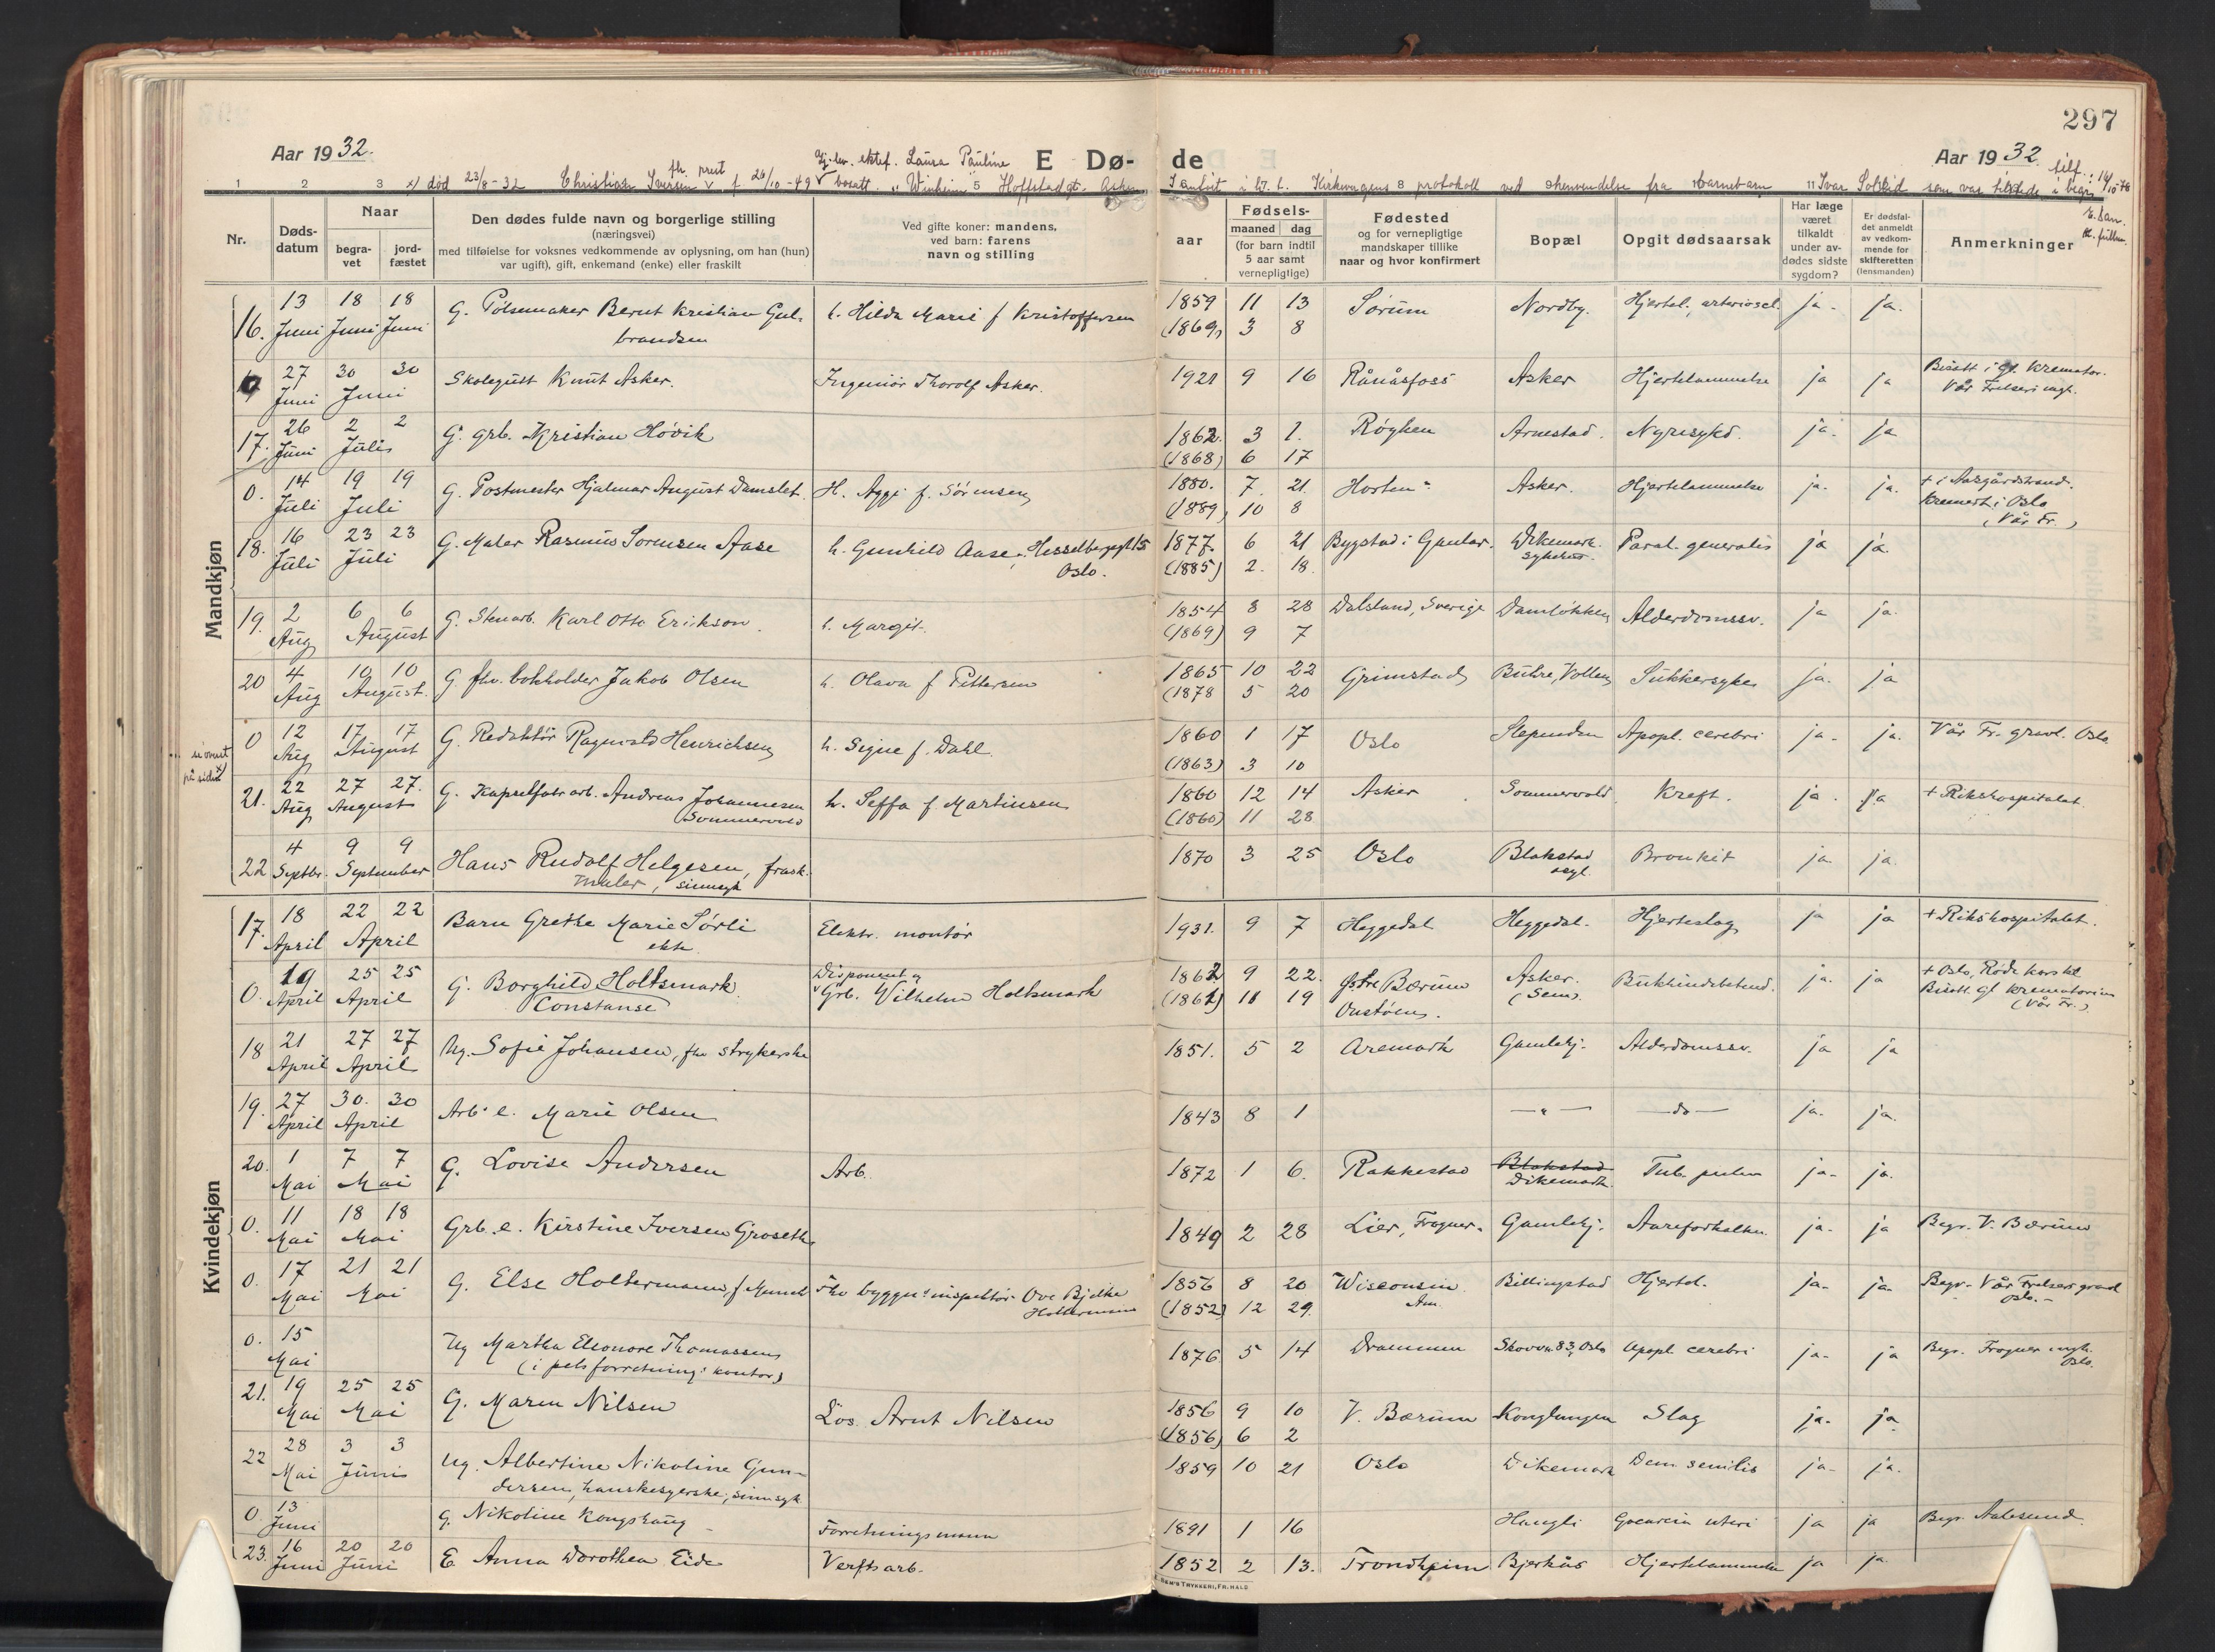 297
Aar 1932.
E Dø-
de
Aar 1932.
Gj. lev. ektef. Laura Pauline
x) død 23/8-32 Christian Iversen f 26/10-49 bosatt "Winheim" Hoffstadgt. Asker
Innført i h.t. Kirkevergens protokoll ved henvendelse fra barnebarn Ivar Sollid som var tilstede i begr.
1 2 3 5 8 9 10 11
Nr.
Døds-
datum
Naar
begra-
vet
jord-
fæstet
Den dødes fulde navn og borgerlige stilling
(næringsvei)
med tilføielse for voksnes vedkommende av oplysning, om han (hun)
var ugift), gift, enkemand (enke) eller fraskilt
Ved gifte koner: mandens,
ved barn: farens
navn og stilling
Fødsels-
aar
maaned dag
(for barn indtil
5 aar samt
vernepligtige)
Fødested
og for vernepligtige
mandskaper tillike
naar og hvor konfirmert
Bopæl
Opgit dødsaarsak
Har læge
været
tilkaldt
under av-
dødes sidste
sygdom?
Er dødsfal-
det anmeldt
av vedkom-
mende for
skifteretten
(lensmanden)
Anmerkninger
Mandkjøn
16. 13 Juni 18 Juni 18 Juni G. Pølsemaker Bernt Kristian Gul-
brandsen h. Hilda Marie f Kristoffersen 1859 11 13 Sørum Nordby. Hjertel., arterioscl. ja - ja.
(1869) 3 8
27 Juni 30 30 Juni Skolegutt Knut Asker. Ingeniør Thorolf Asker. 1921 9 16 Rånåsfoss Asker Hjertelammelse ja ja Bisatt i gl. Kremator.
Vår Frelsers
17. 26 Juni 2 2 Juli G. grb. Kristian Høvik 1862. 3 1. Røyken Arnestad. Nyresykd. ja. ja
(1868) 6 17
0. 14 Juli 19 19 Juli G. Postmester Hjalmar August Damslet. H. Aggi f. Sørensen 1880. 7. 21. Horten Asker. Hjertelammelse ja. ja. + i Aasgårdstrand.
(1889) 10 8 Kremert i Oslo
(Vår Fr.)
18. 16 Juli 23 23 Juli G. Maler Rasmus Sørensen Aase h. Gunhild Aase, Hesselbergsgt 15
Oslo. 1877. 6 21 Bygstad i Gaular. Dikemark
sykehus. Paral. generalis ja ja.
(1885) 2. 18.
19. 2 Aug 6 6 August G. Stenarb. Karl Otto Erikson. h. Margit. 1854 8 28 Dalsland, Sverige Damløkken Alderdomssv. ja ja.
(1869) 9 7
20 4 Aug 10 10 August. G. fhv. bokholder Jakob Olsen h. Olava f Pettersen 1865 10 22 Grimstad Buhre, Vollen Sukkersyke ja. ja
(1878 5 20
0 12 Aug 17 17 August G. Redaktør Ragnvald Henrichsen h. Signe f. Dahl. 1860 1 17 Oslo Slependen Apopl. cerebri ja - ja. Vår Fr. gravl. Oslo.
(1863) 3 10
på siden x)
21. 22 Aug 27 27. August G. Kapselfabr. arb. Andreas Johannesen
Sommervold h. Seffa f Martinsen 1860 12 14 Asker Sommervold. Kreft. ja. ja + Rikshospitalet.
(1860) 11 28
22 4 Septbr. 9 9 September Hans Rudolf Helgesen, frask.
maler, sinnsyk 1870 3 25 Oslo Blakstad
asyl. Bronkit ja ja.
Kvindekjøn
17. 18 April 22 22 April Barn Grethe Marie Sørli
ekte Elektr. montør 1931. 9 7 Heggedal Heggedal. Hjerteslag ja ja + Rikshospitalet.
0. 19 April 25 25 April G. Borghild Holtsmark.
Constanse Disponent og
Grb. Vilhelm Holtsmark 1862 9 22. Østre Bærum Asker.
(Sem). Bukhindebetend. ja. ja + Oslo, Røde kors kl.
Bisatt. gl krematorium
(Vår Fr.)
(1861) 11 19 Onstøen.
18 21 April 27 27 April Ug. Sofie Johansen, fhv strykerske 1851. 5 2 Aremark Gamlehj. Alderdomssv. ja ja
19. 27 April 30. 30 April Arb. e. Marie Olsen 1843 8 1 — " — — do — ja. ja.
20. 1 Mai 7 7 Mai G. Lovise Andersen Arb. 1872 1 6. Rakkestad Blakstad
Dikemark. Tub. pulm ja- ja.
0. 11 Mai 18 18 Mai Grb. e. Kirstine Iversen Groseth 1849 2 28 Lier, Frogner. Gamlehj. Aareforkalkn. ja- ja Begr. V. Bærum
0. 17 Mai 21 21 Mai G. Else Holtermann, f Munch Fhv byggn.inspektør Ove Bjelke
Holtermann 1856 8 20 Wisconsin
Am. Billingstad Hjertel. ja- ja- Begr. Vår Frelsers gravl
Oslo.-
(1852) 12 29.
0. 15 Mai Ug Martha Eleonore Thomassen
(i pelsforretning: kontor) 1876 5 14 Drammen Skovvn 83, Oslo Apopl. cerebri ja- ja Begr. Frogner
Oslo.
21. 19 Mai 25 25 Mai G. Maren Nilsen Løs. Arnt Nilsen 1856 9 10 V. Bærum Konglungen Slag ja. ja
(1856) 6 2
22 28 Mai 3 3 Juni Ug. Albertine Nikoline Gun-
dersen, hanskesyerske, sinnsyk 1859 10 21 Oslo Dikemark Dem. senilis ja- ja.
0 13 Juni G. Nikoline Kongshaug Forretningsmann 1891 1 16 Haugli uteri ja ja Begr. Aalesund.
23. 16 Juni 20 20 Juni E. Anna Dorothea Eide Verftsarb. 1852 2 13. Trondhjem Bjerkås Hjertelammelse ja ja.
TRYKKERI, FR. HALD